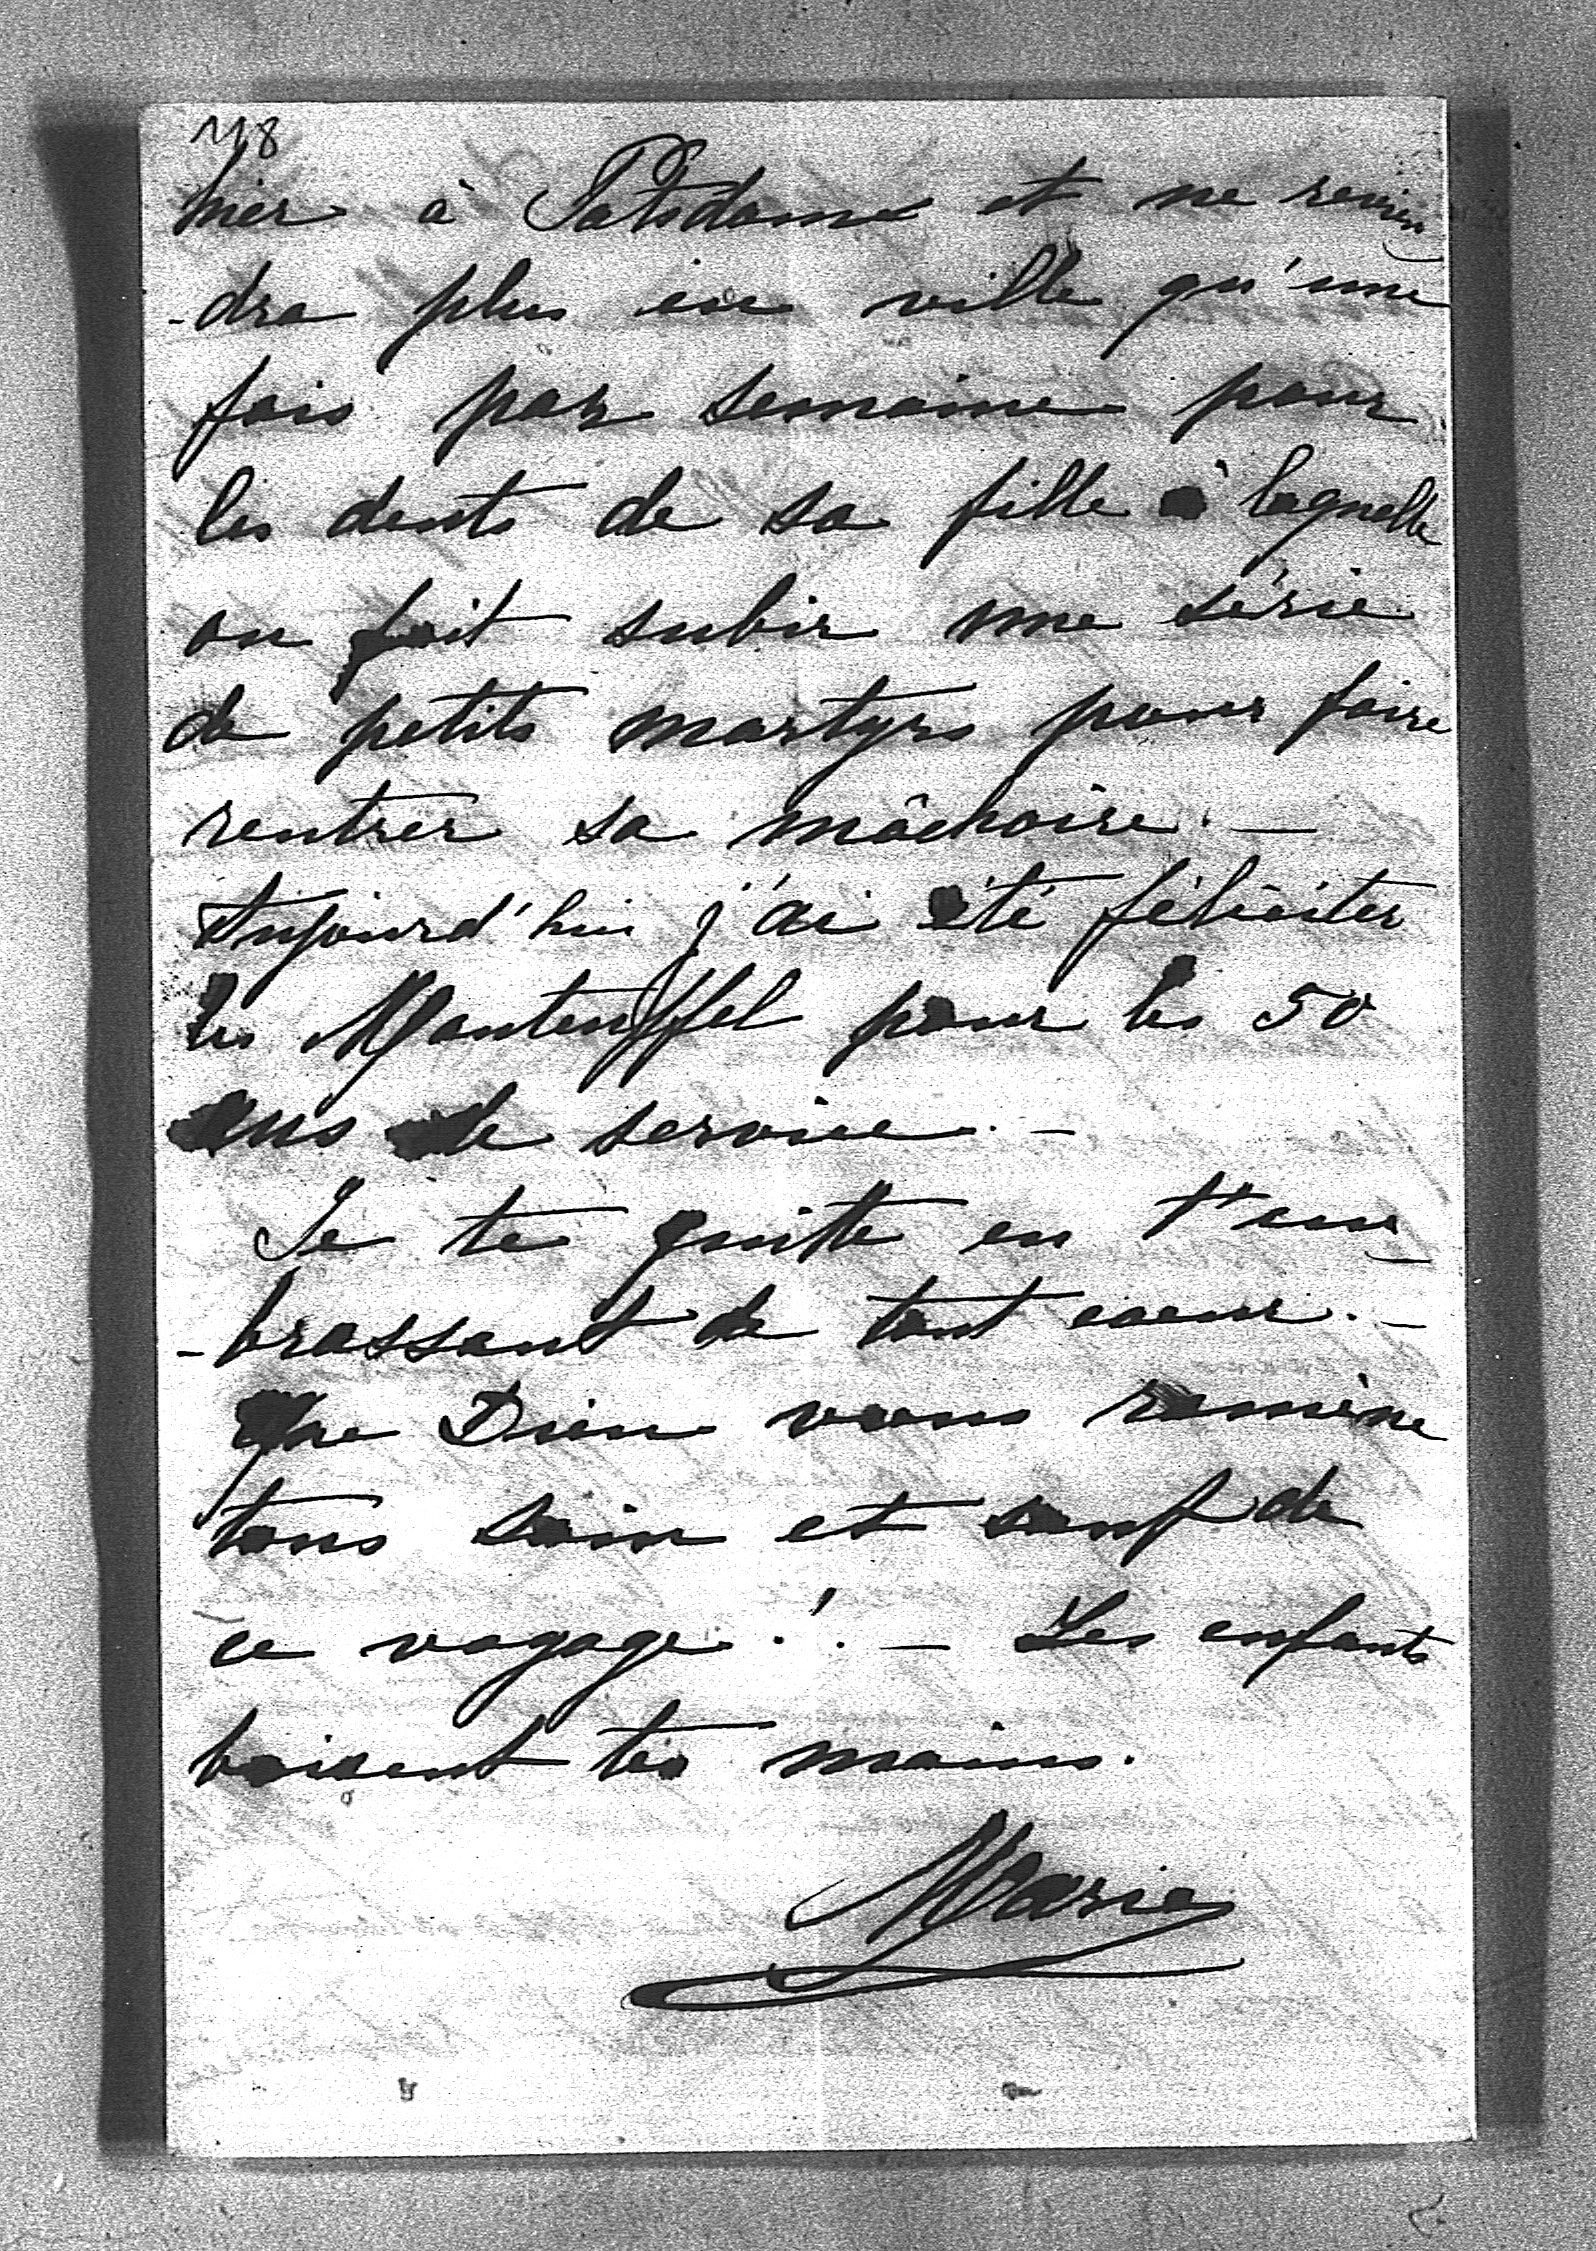 718
hier à Patsdame et ne revien
-dra plus en ville qu'une
fois par semaine pour
les dents de sa fille à laquelle
on fait subir une série
de petits martyrs pour faire
rentrer sa mâchoire. —
Aujourd'hui j'ai été féliciter
les Manteuffel pour les 50
ans de service. —
Je te quitte en t'em
-brassant de tout coeur. —
Que Dieu vous ramène
tous sain et sauf de
ce voyage ! — Les enfants
baisent tes mains.
Marie